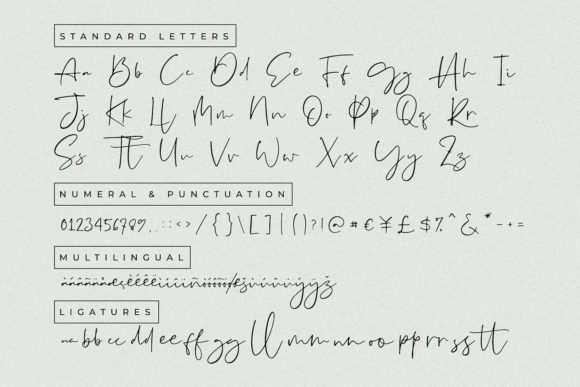 STANDARD LETTERS
Aa Bb Cc Dd Ee Ff Gg Hh Ii
Jj Kk Ll Mm Nn Oo Pp Qq Rr
Ss Tt Uu Vv Ww Xx Yy Zz
NUMERAL & PUNCTUATION
0123456789,.:;<>/{}\[]|()?!@#€¥£$%^&*-+=
MULTILINGUAL
LIGATURES
aa bb cc dd ee ff gg ll mm nn oo pp rr ss tt